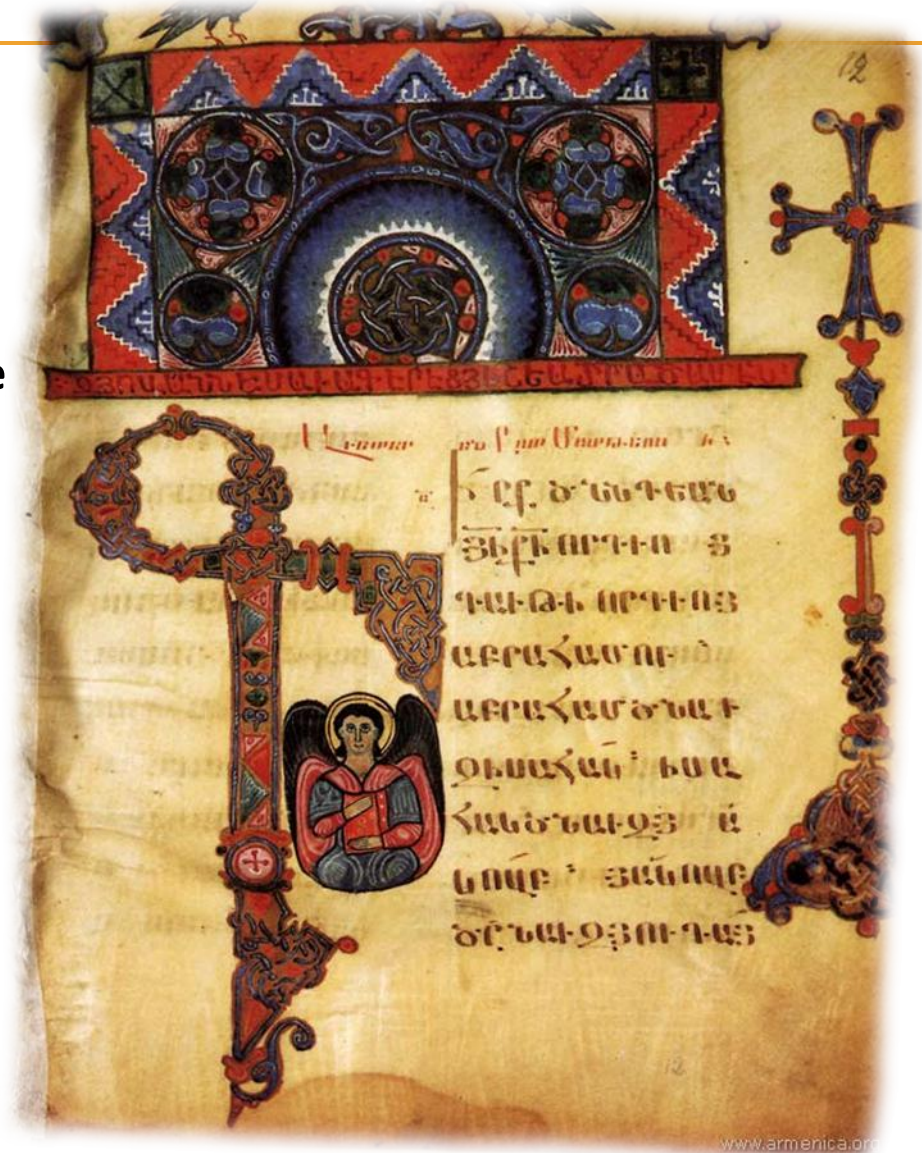 12
e
ԻՐՔ ԾՆՆԴԵԱՆ
ՅԻ ՔԻ ՈՐԴՒՈ Յ
ԴԱՒԹԻ ՈՐԴՒՈՅ
ԱԲՐԱՀԱՄՈՒ
ԱԲՐԱՀԱՄ ԾՆԱՒ
ԶԻՍԱՀԱԿ ։ ԻՍԱ
ՀԱԿ ԾՆԱՒ ԶՅ Ա
ԿՈՎԲ ։ ՅԱԿՈՎԲ
ԾՆԱՒ ԶՅՈՒԴԱՅ
12
www.armenica.org